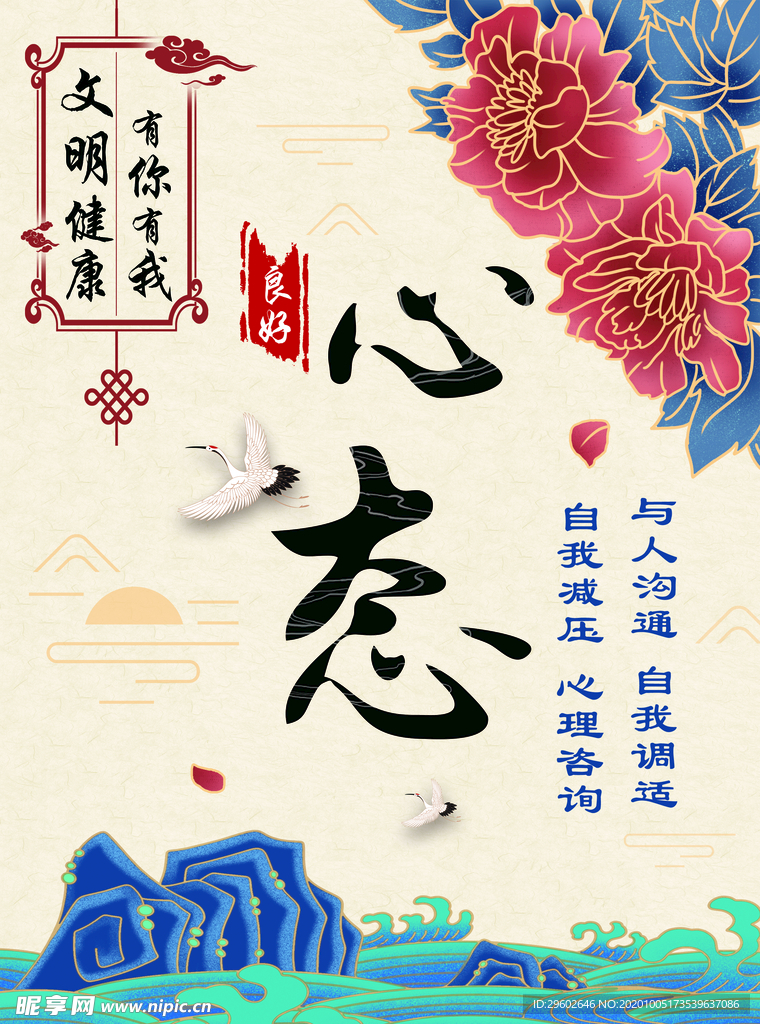 文明健康
有你有我
良好
心态
与人沟通 自我调适
自我减压 心理咨询
昵享网 www.nipic.cn
ID:29602646 NO:20201005173539637086